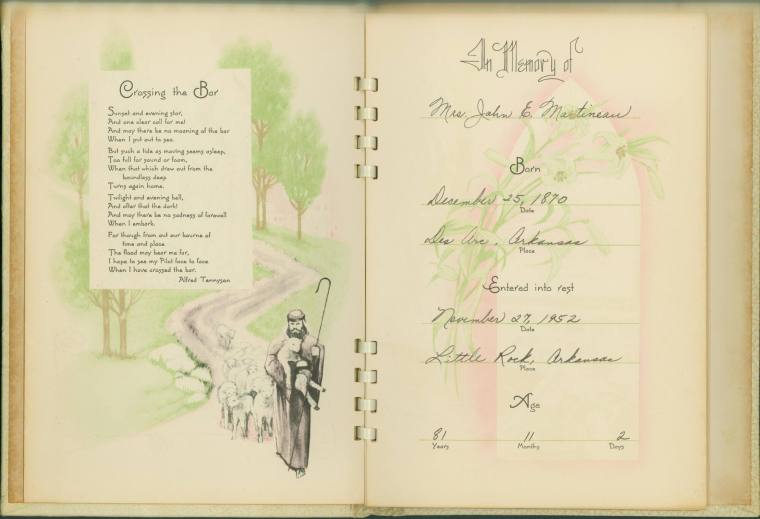 Crossing the Bar
Sunset and evening star,
And one clear call for me!
And may there be no moaning of the bar
When I put out to sea.
But such a tide as moving seems asleep,
Too full for sound or foam,
When that which drew out from the
boundless deep
Turns again home.
Twilight and evening bell,
And after that the dark!
And may there be no sadness of farewell
When I embark;
For though from out our bourne of
time and place
The flood may bear me far,
I hope to see my Pilot face to face
When I have crossed the bar.
Alfred Tennyson
In Memory of
Mrs. John E. Martineau
Born
December 25, 1870
Date
Des Arc, Arkansas
Place
Entered into rest
November 27, 1952
Date
Little Rock, Arkansas
Place
Age
81 11 2
Years Months Days